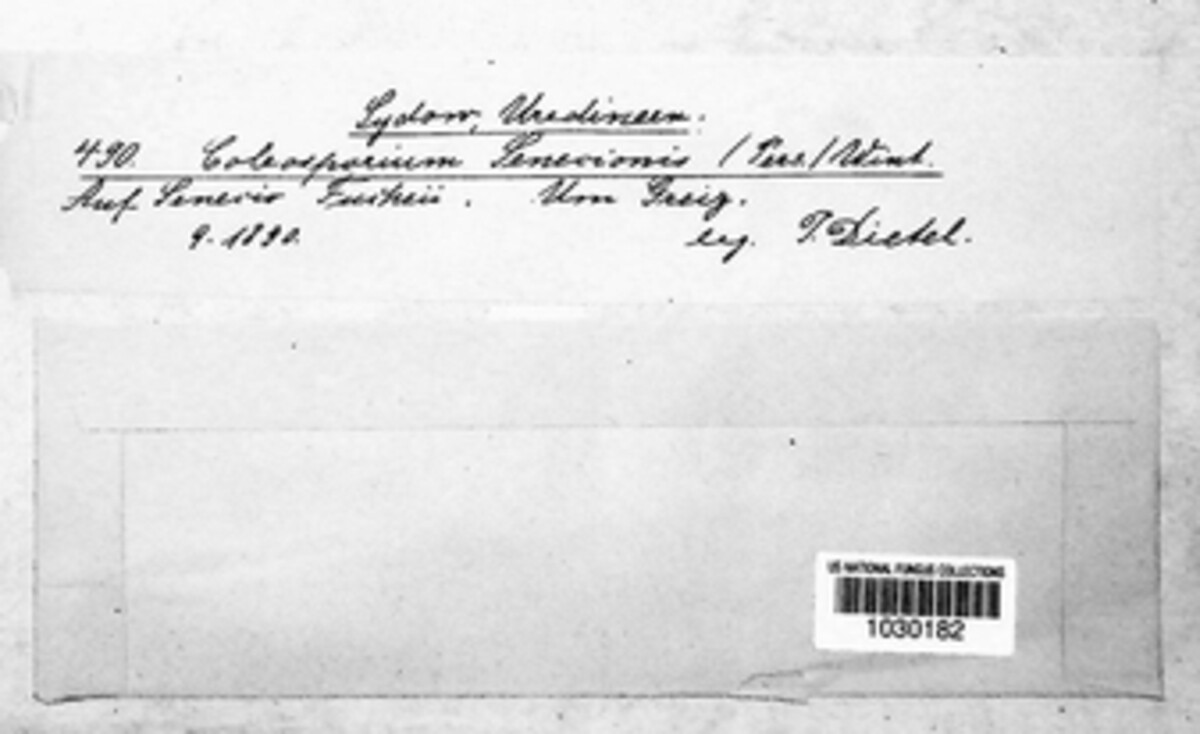 Sydow, Uredineen.
490. Coleosporium Senecionis (Pers.) Wint.
Auf Senecio Fuchsii. Um Greiz.
9. 1890. leg. P. Dietel.
US NATIONAL FUNGUS COLLECTIONS
1030182